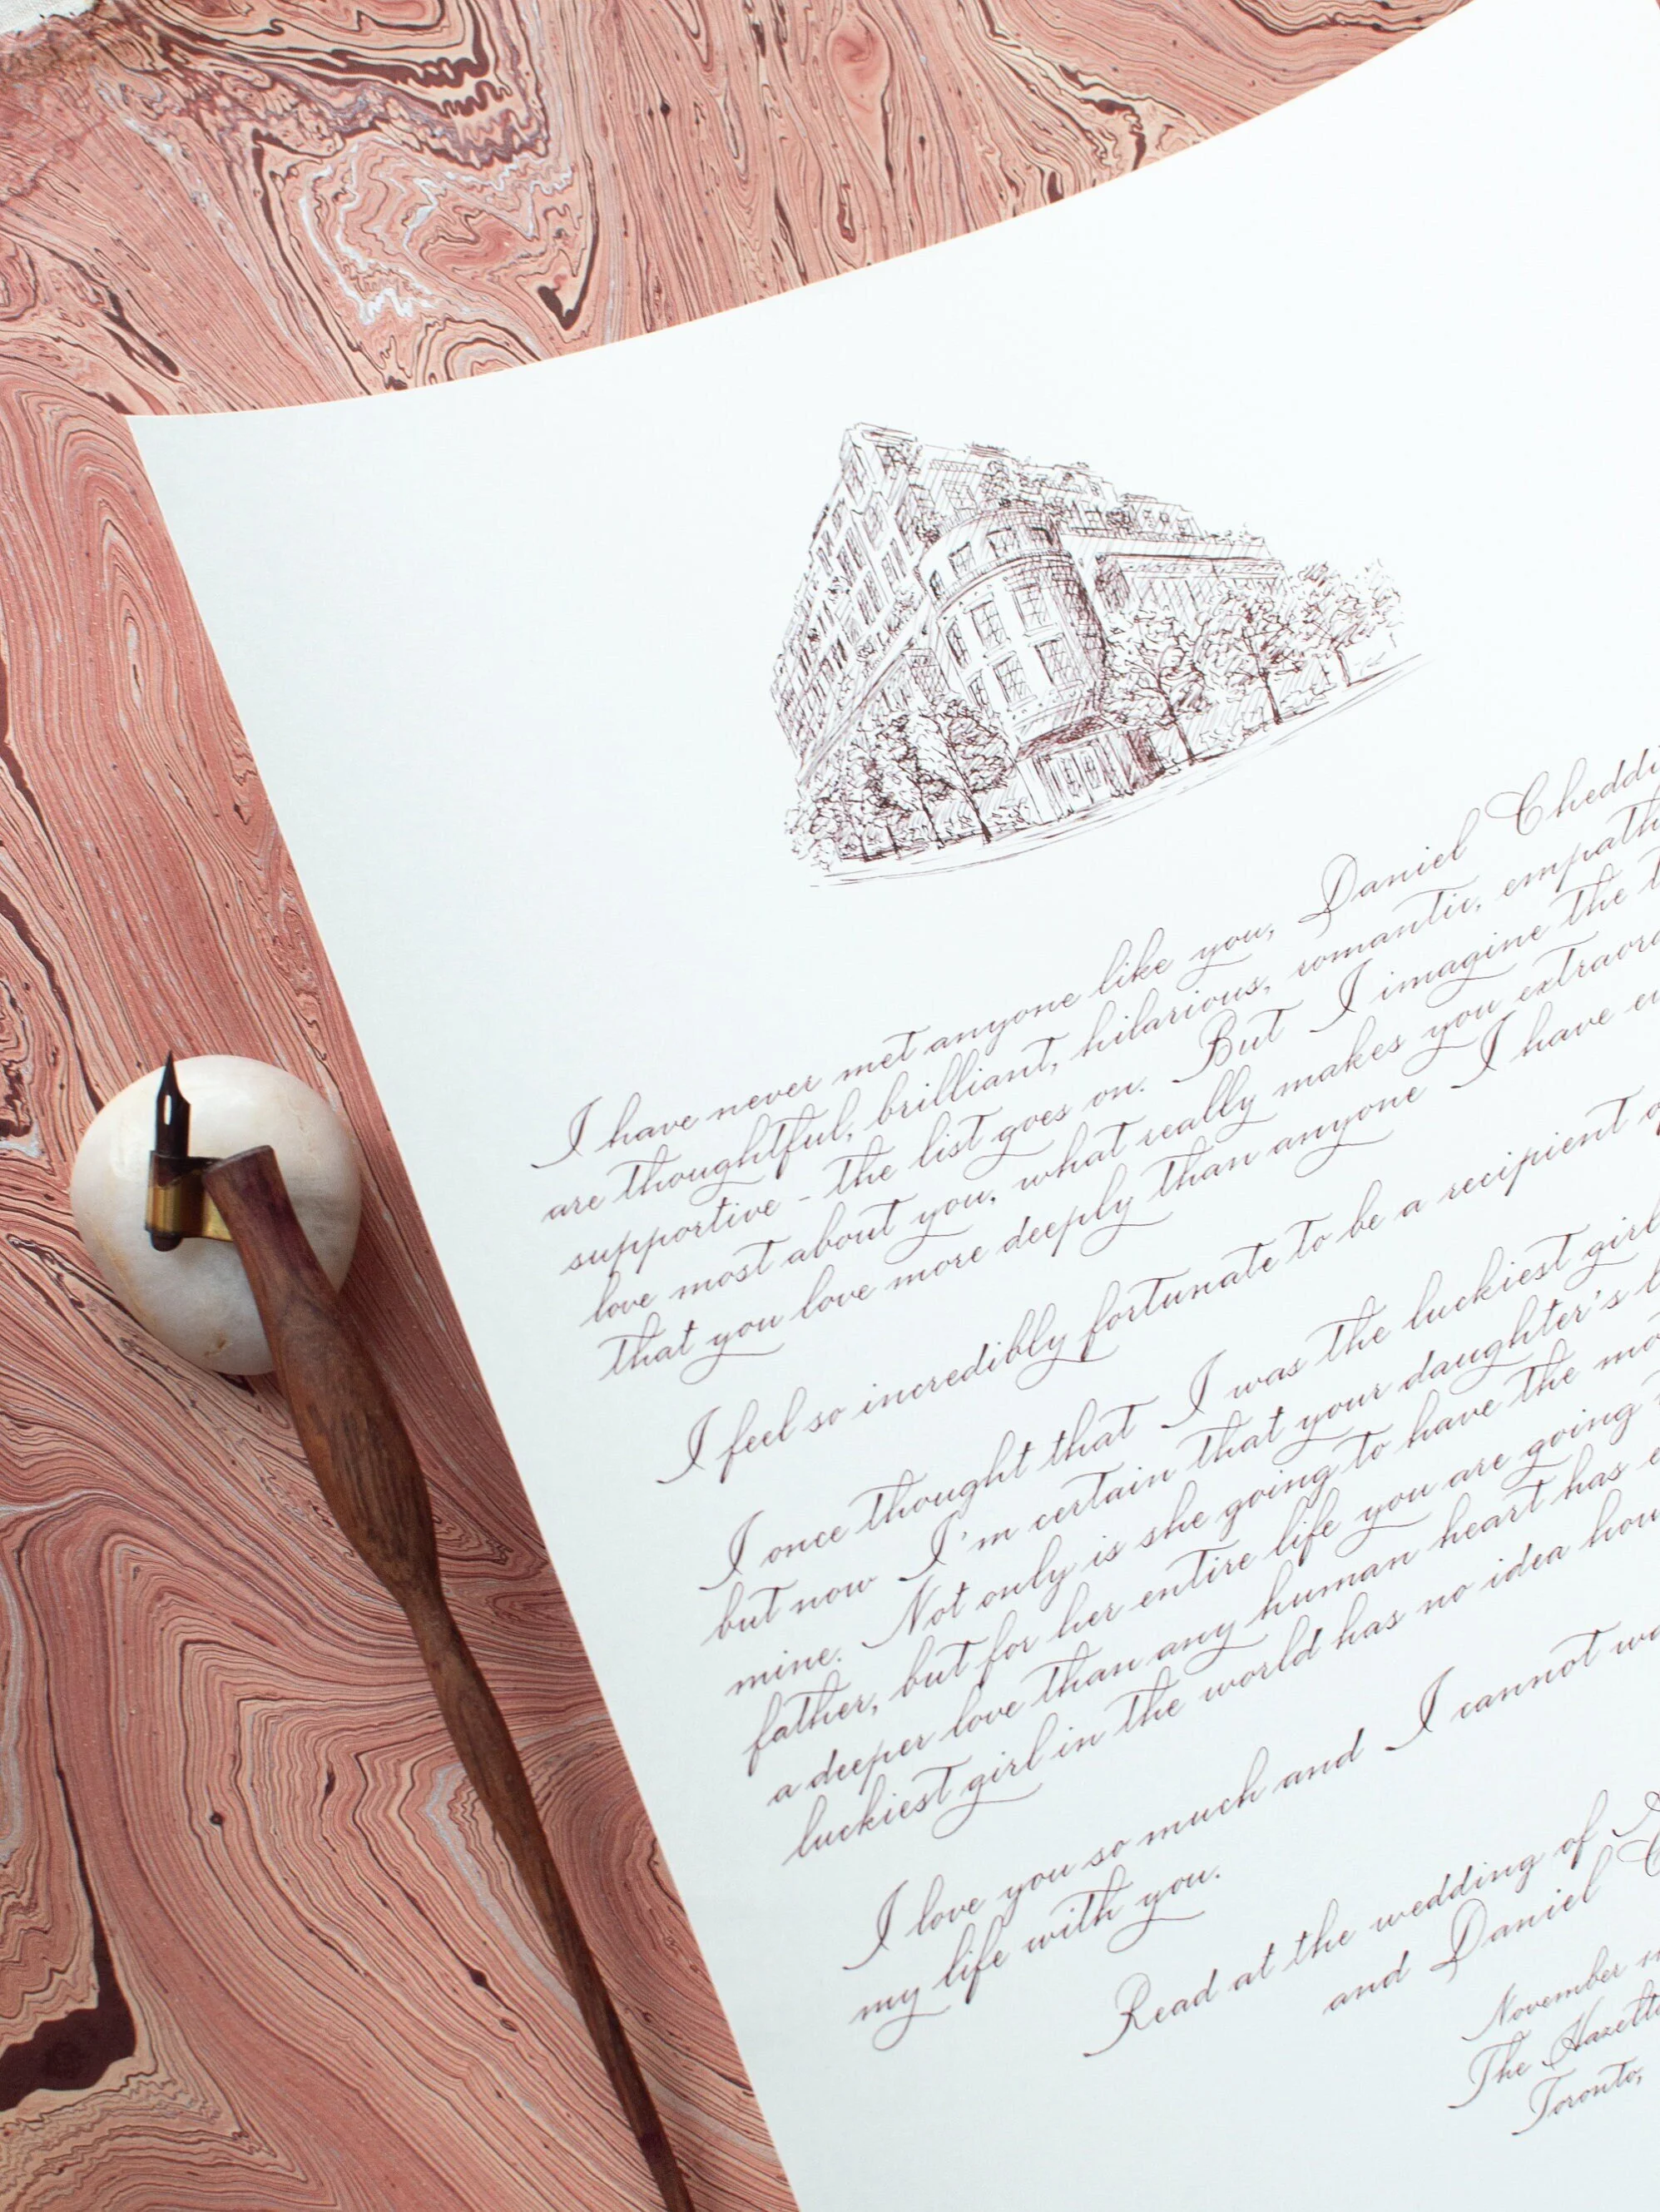 I have never met anyone like you, Daniel
are thoughtful, brilliant, hilarious, romantic,
supportive - the list goes on. But I imagine the
love most about you, what really makes you
that you love more deeply than anyone I have
I feel so incredibly fortunate to be a recipient
I once thought that I was the luckiest girl
but now I'm certain that your daughter's
mine. Not only is she going to have the
father, but for her entire life you are going
a deeper love than any human heart has
luckiest girl in the world has no idea
I love you so much and I cannot
my life with you.
Read at the wedding of
and Daniel
November
The
Toronto,